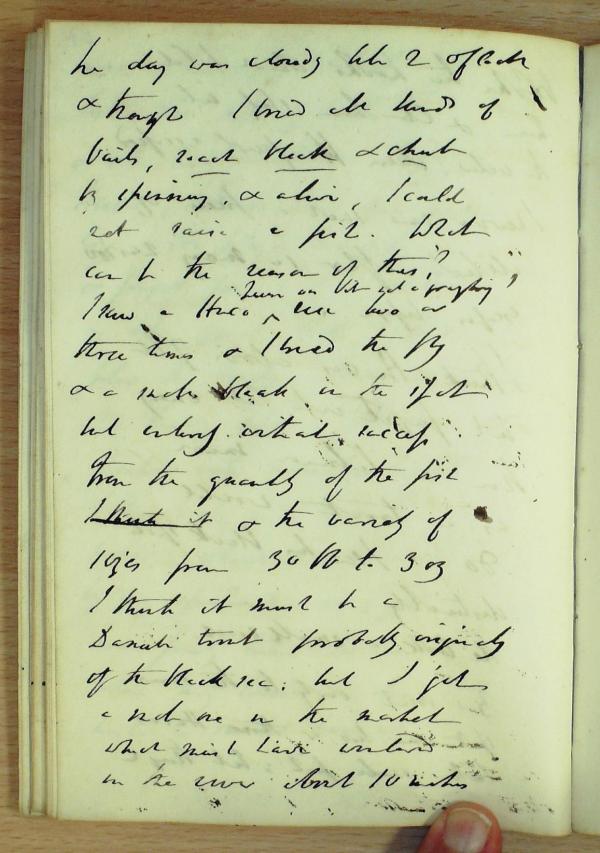 he day was cloudy till 2 o'clock
& though I tried all kinds of
baits, roach bleak & chub
by spinning, & alive, I could
not raise a fish. What
can be the reason of this?
I saw a Huco rise two or
three times & I tried the fly
& a small bleak in the spot
but entirely without success
From the quantity of the fish
I think it & the variety of
sizes from 30 lb to 3 oz
I think it must be a
Danube trout probably originally
of the black sea; but I got
a small one in the market
which must have wintered
in the river about 10 inches